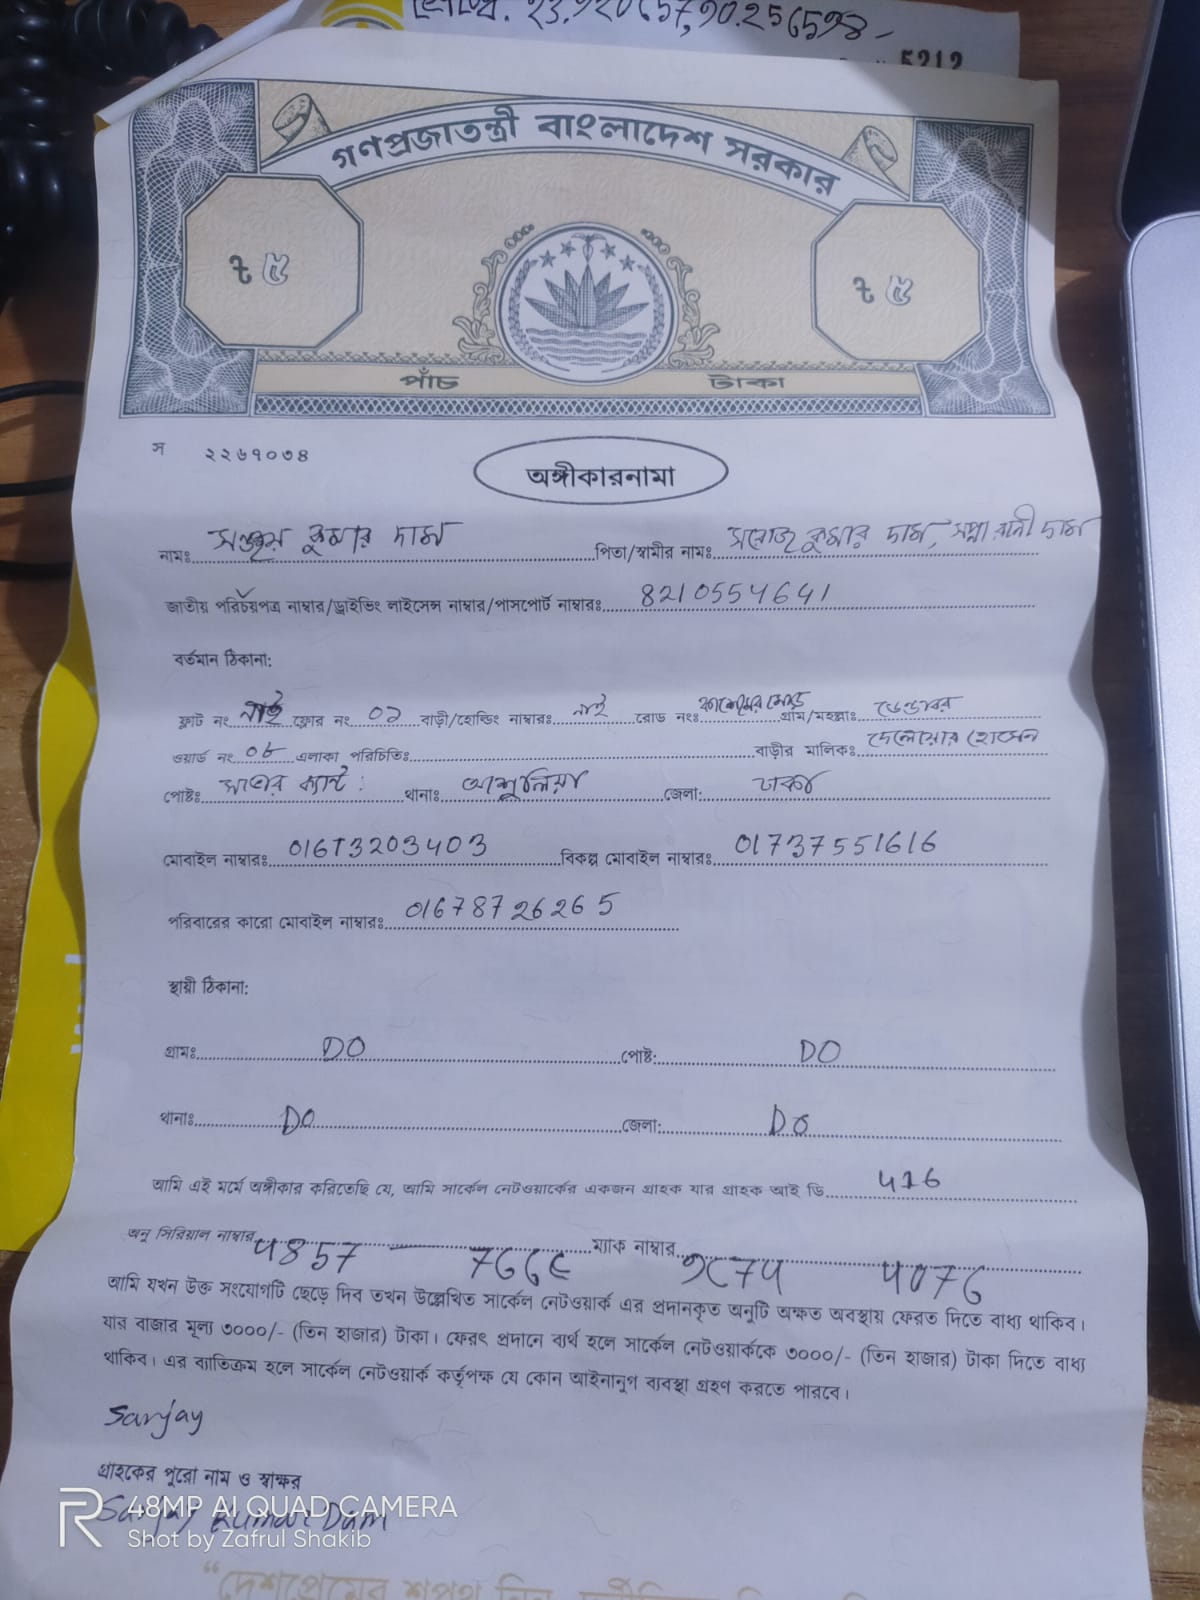 23.920657,90.256598-
5212
গণপ্রজাতন্ত্রী বাংলাদেশ সরকার
৳ ৫ ৳ ৫
পাঁচ টাকা
স ২২৬৭০৩৪
অঙ্গীকারনামা
নামঃ সঞ্জয় কুমার দাম পিতা/স্বামীর নামঃ সরোজ কুমার দাম, সপ্না রানী দাম
জাতীয় পরিচয়পত্র নাম্বার/ড্রাইভিং লাইসেন্স নাম্বার/পাসপোর্ট নাম্বারঃ 8210554641
বর্তমান ঠিকানা:
ফ্লাট নং নাই ফ্লোর নং ০১ বাড়ী/হোল্ডিং নাম্বারঃ নাই রোড নংঃ গ্রাম/মহল্লাঃ ডেন্ডাবর
ওয়ার্ড নং ০৮ এলাকা পরিচিতিঃ বাড়ীর মালিকঃ দেলোয়ার হোসেন
পোষ্টঃ সাভার ক্যান্ট: থানাঃ আশুলিয়া জেলা: ঢাকা
মোবাইল নাম্বারঃ 01673203403 বিকল্প মোবাইল নাম্বারঃ 01737551616
পরিবারের কারো মোবাইল নাম্বারঃ 01678726265
স্থায়ী ঠিকানা:
গ্রামঃ DO পোষ্ট: DO
থানাঃ DO জেলা: DO
আমি এই মর্মে অঙ্গীকার করিতেছি যে, আমি সার্কেল নেটওয়ার্কের একজন গ্রাহক যার গ্রাহক আই ডি 416
অনু সিরিয়াল নাম্বার 4857 ম্যাক নাম্বার 4076
আমি যখন উক্ত সংযোগটি ছেড়ে দিব তখন উল্লেখিত সার্কেল নেটওয়ার্ক এর প্রদানকৃত অনুটি অক্ষত অবস্থায় ফেরত দিতে বাধ্য থাকিব।
যার বাজার মূল্য ৩০০০/- (তিন হাজার) টাকা। ফেরৎ প্রদানে ব্যর্থ হলে সার্কেল নেটওয়ার্ককে ৩০০০/- (তিন হাজার) টাকা দিতে বাধ্য
থাকিব। এর ব্যতিক্রম হলে সার্কেল নেটওয়ার্ক কর্তৃপক্ষ যে কোন আইনানুগ ব্যবস্থা গ্রহণ করতে পারবে।
Sanjay
গ্রাহকের পুরো নাম ও স্বাক্ষর
Sanjay Kumar Dam
R 48MP AI QUAD CAMERA
Shot by Zafrul Shakib
“দেশপ্রেমের শপথ নিন,